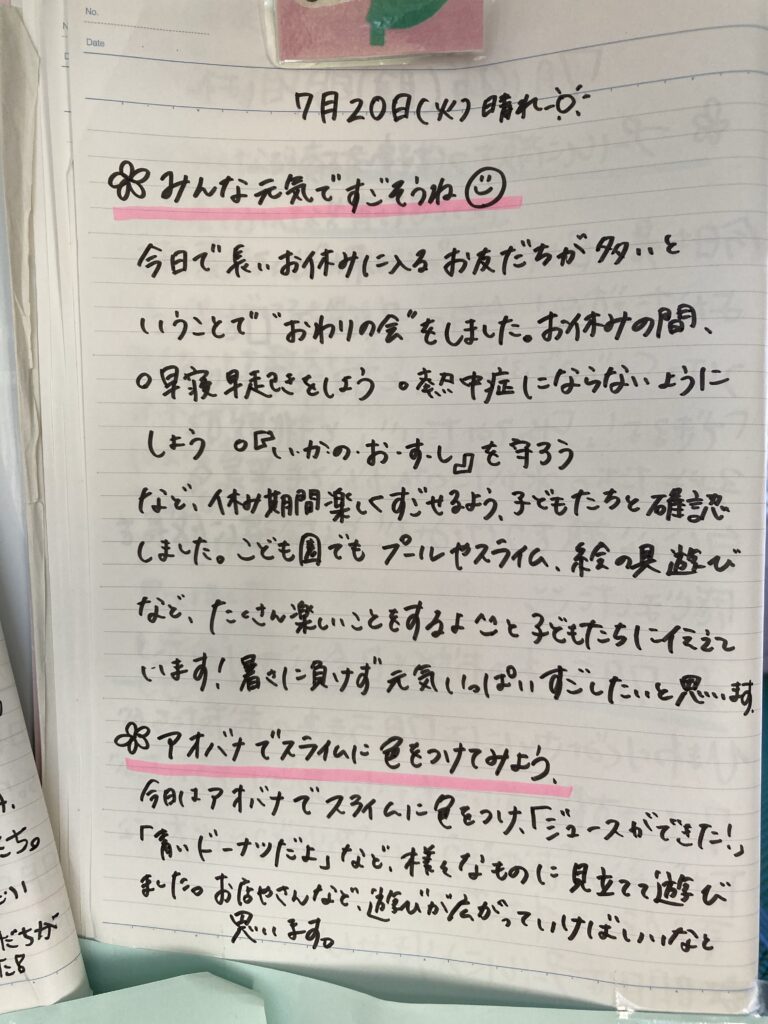 No.
Date
7月20日(火)晴れ
みんな元気ですごそうね
今日で長いお休みに入るお友だちが多いと
いうことで"おわりの会"をしました。お休みの間、
○早寝早起きをしよう ○熱中症にならないように
しよう ○『い・か・の・お・す・し』を守ろう
など、休み期間楽しくすごせるよう、子どもたちと確認
しました。こども園でもプールやスライム、絵の具遊び
など、たくさん楽しいことをするよ^^と子どもたちに伝えて
います!暑さに負けず元気いっぱいすごしたいと思います。
アオバナでスライムに色をつけてみよう、
今日はアオバナでスライムに色をつけ、「ジュースができた!」
「青いドーナツだよ」など、様々なものに見立てて遊び
ました。お店やさんなど、遊びが広がっていけばいいなと
思います。
だちが